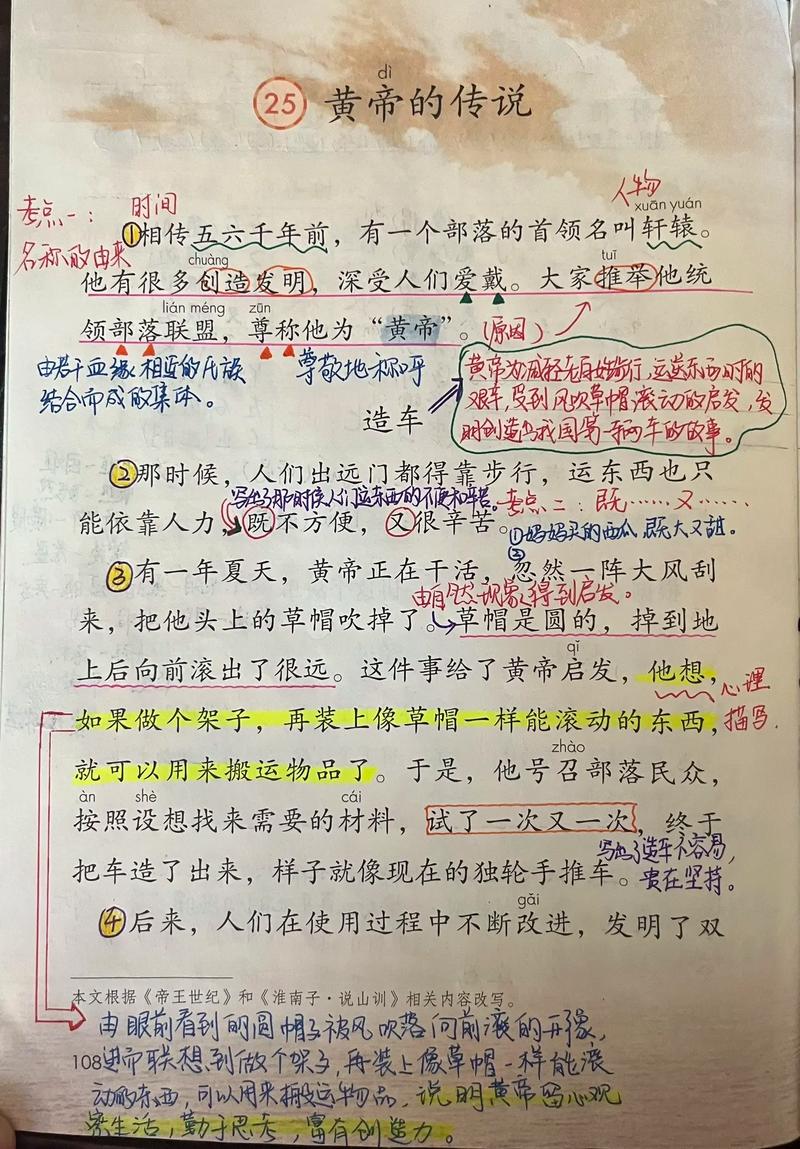 dì
25 黄帝的传说
人物
考点一： 时间 xuān yuán
①相传五六千年前，有一个部落的首领名叫轩辕。
名称的由来
chuàng tuī
他有很多创造发明，深受人们爱戴。大家推举他统
lián méng zūn
领部落联盟，尊称他为“黄帝”。(原因)
由若干血缘相近的氏族 尊敬地称呼
结合而成的集体。
黄帝为减轻老百姓步行、运送东西时的
艰辛，受到风吹草帽滚动的启发，发
明创造出我国第一辆车的故事。
造车
②那时候，人们出远门都得靠步行，运东西也只
写出了那时候人们运东西的不便和辛苦。考点二：既……又……
能依靠人力，既不方便，又很辛苦。①妈妈买的西瓜既大又甜。
②
③有一年夏天，黄帝正在干活，忽然一阵大风刮
由自然现象得到启发。
来，把他头上的草帽吹掉了。草帽是圆的，掉到地
qǐ
上后向前滚出了很远。这件事给了黄帝启发，他想，
心理
如果做个架子，再装上像草帽一样能滚动的东西，
描写.
zhào
就可以用来搬运物品了。于是，他号召部落民众，
àn shè cái
按照设想找来需要的材料，试了一次又一次，终于
写出了造车不容易，
把车造了出来，样子就像现在的独轮手推车。
贵在坚持。
gǎi
④后来，人们在使用过程中不断改进，发明了双
本文根据《帝王世纪》和《淮南子·说山训》相关内容改写。
由眼前看到的圆帽子被风吹落向前滚的形象，
108
进而联想到做个架子，再装上像草帽一样能滚
动的东西，可以用来搬运物品，说明黄帝留心观
察生活，勤于思考，富有创造力。